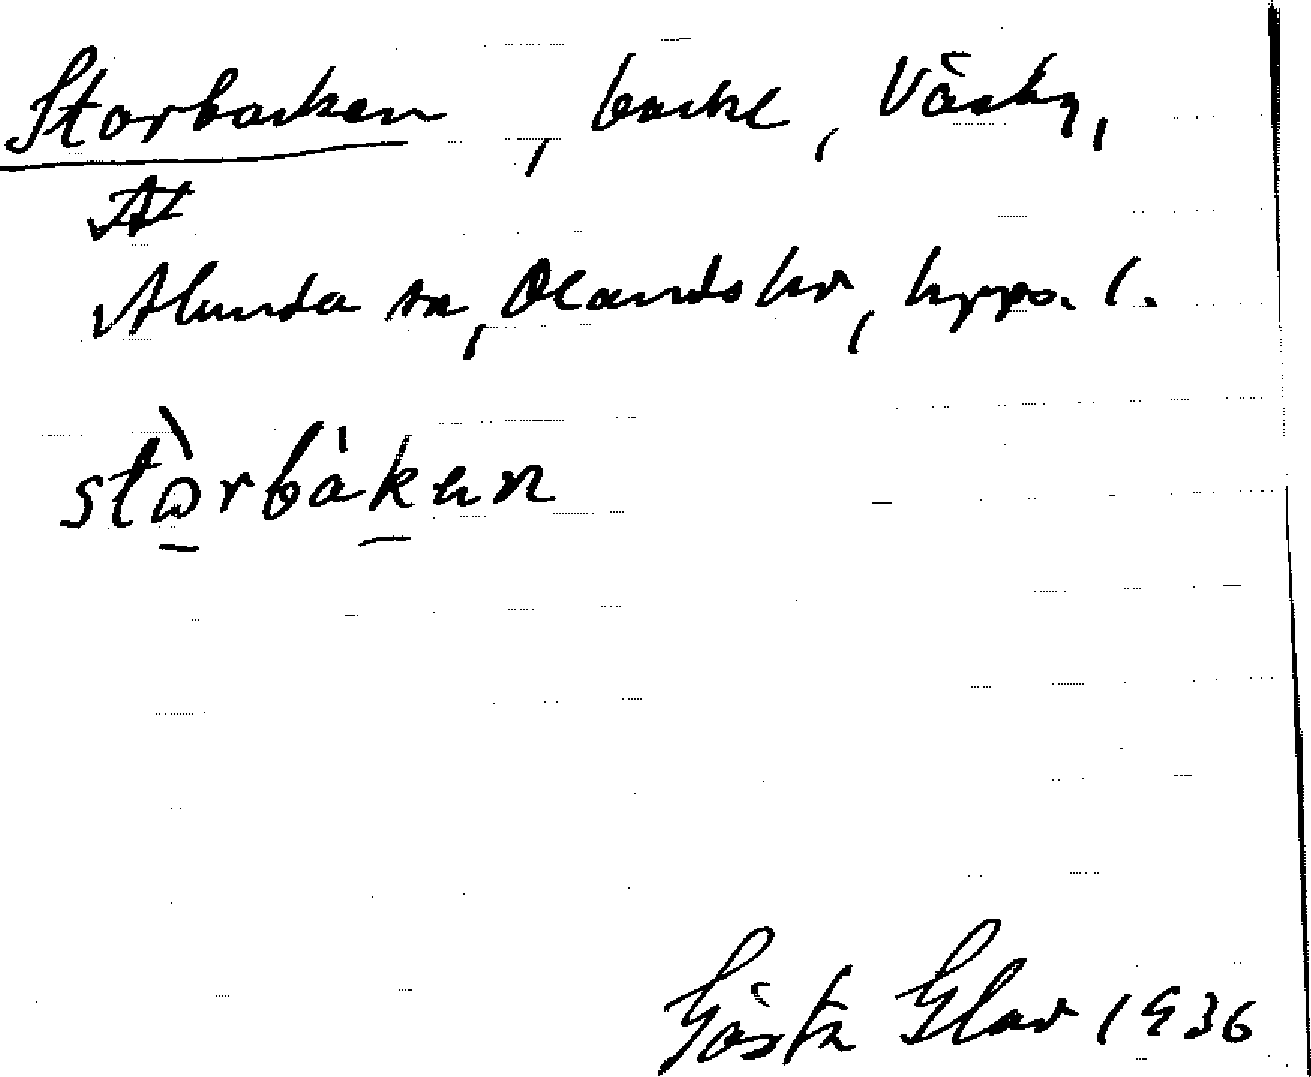 Storbacken, backe, Väsby,
At
Alunda sn, Olands hd, Upps. l.
stòrbáken
Gösta Elav 1936